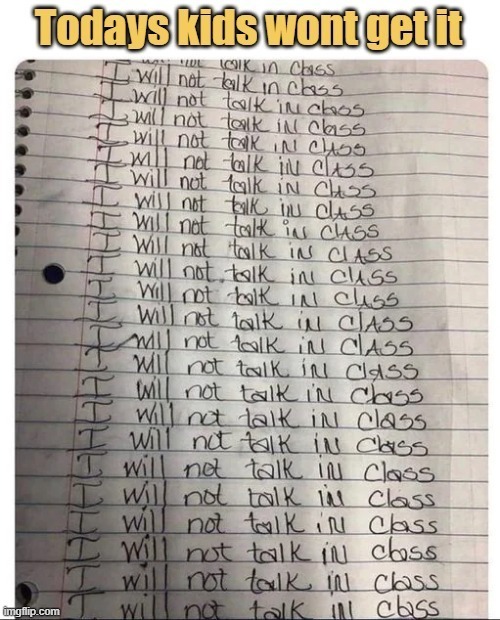 Todays kids wont get it
not talk in Class
I will not talk in Class
I will not talk iN class
I will not talk iN Class
I will not talk iN ClAss
I will not talk iN ClASS
I will not talk iN ClASS
I will not talk iN ClASS
I will not talk iN ClASS
I will not talk iN ClASS
I will not talk in ClASS
I will not talk iN ClASS
I will not talk iN ClASS
I will not talk iN ClASS
I will not talk iN ClASS
I will not talk iN Class
I will not talk iN Class
I will not talk iN Class
I will not talk iN Class
I will not talk iN Class
I will not talk iN Class
I will not talk iN class
I will not talk in class
I will not talk in class
imgflip.com